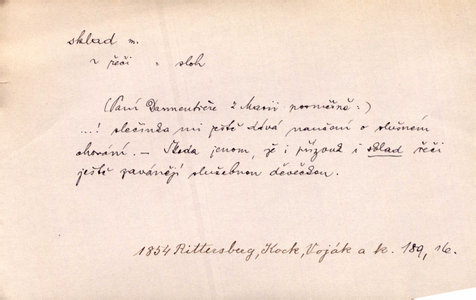 sklad m.
v řeči = sloh
(Paní Dannentíře z Marii posměšně:)
...! slečinka mi ještě dává naučení o slušném
chování. – Škoda jenom, že i přízvuk i sklad řeči
ještě zavánějí služebnou děvečkou.
1854 Rittersberg, Kock, Voják a k. 189, 16.